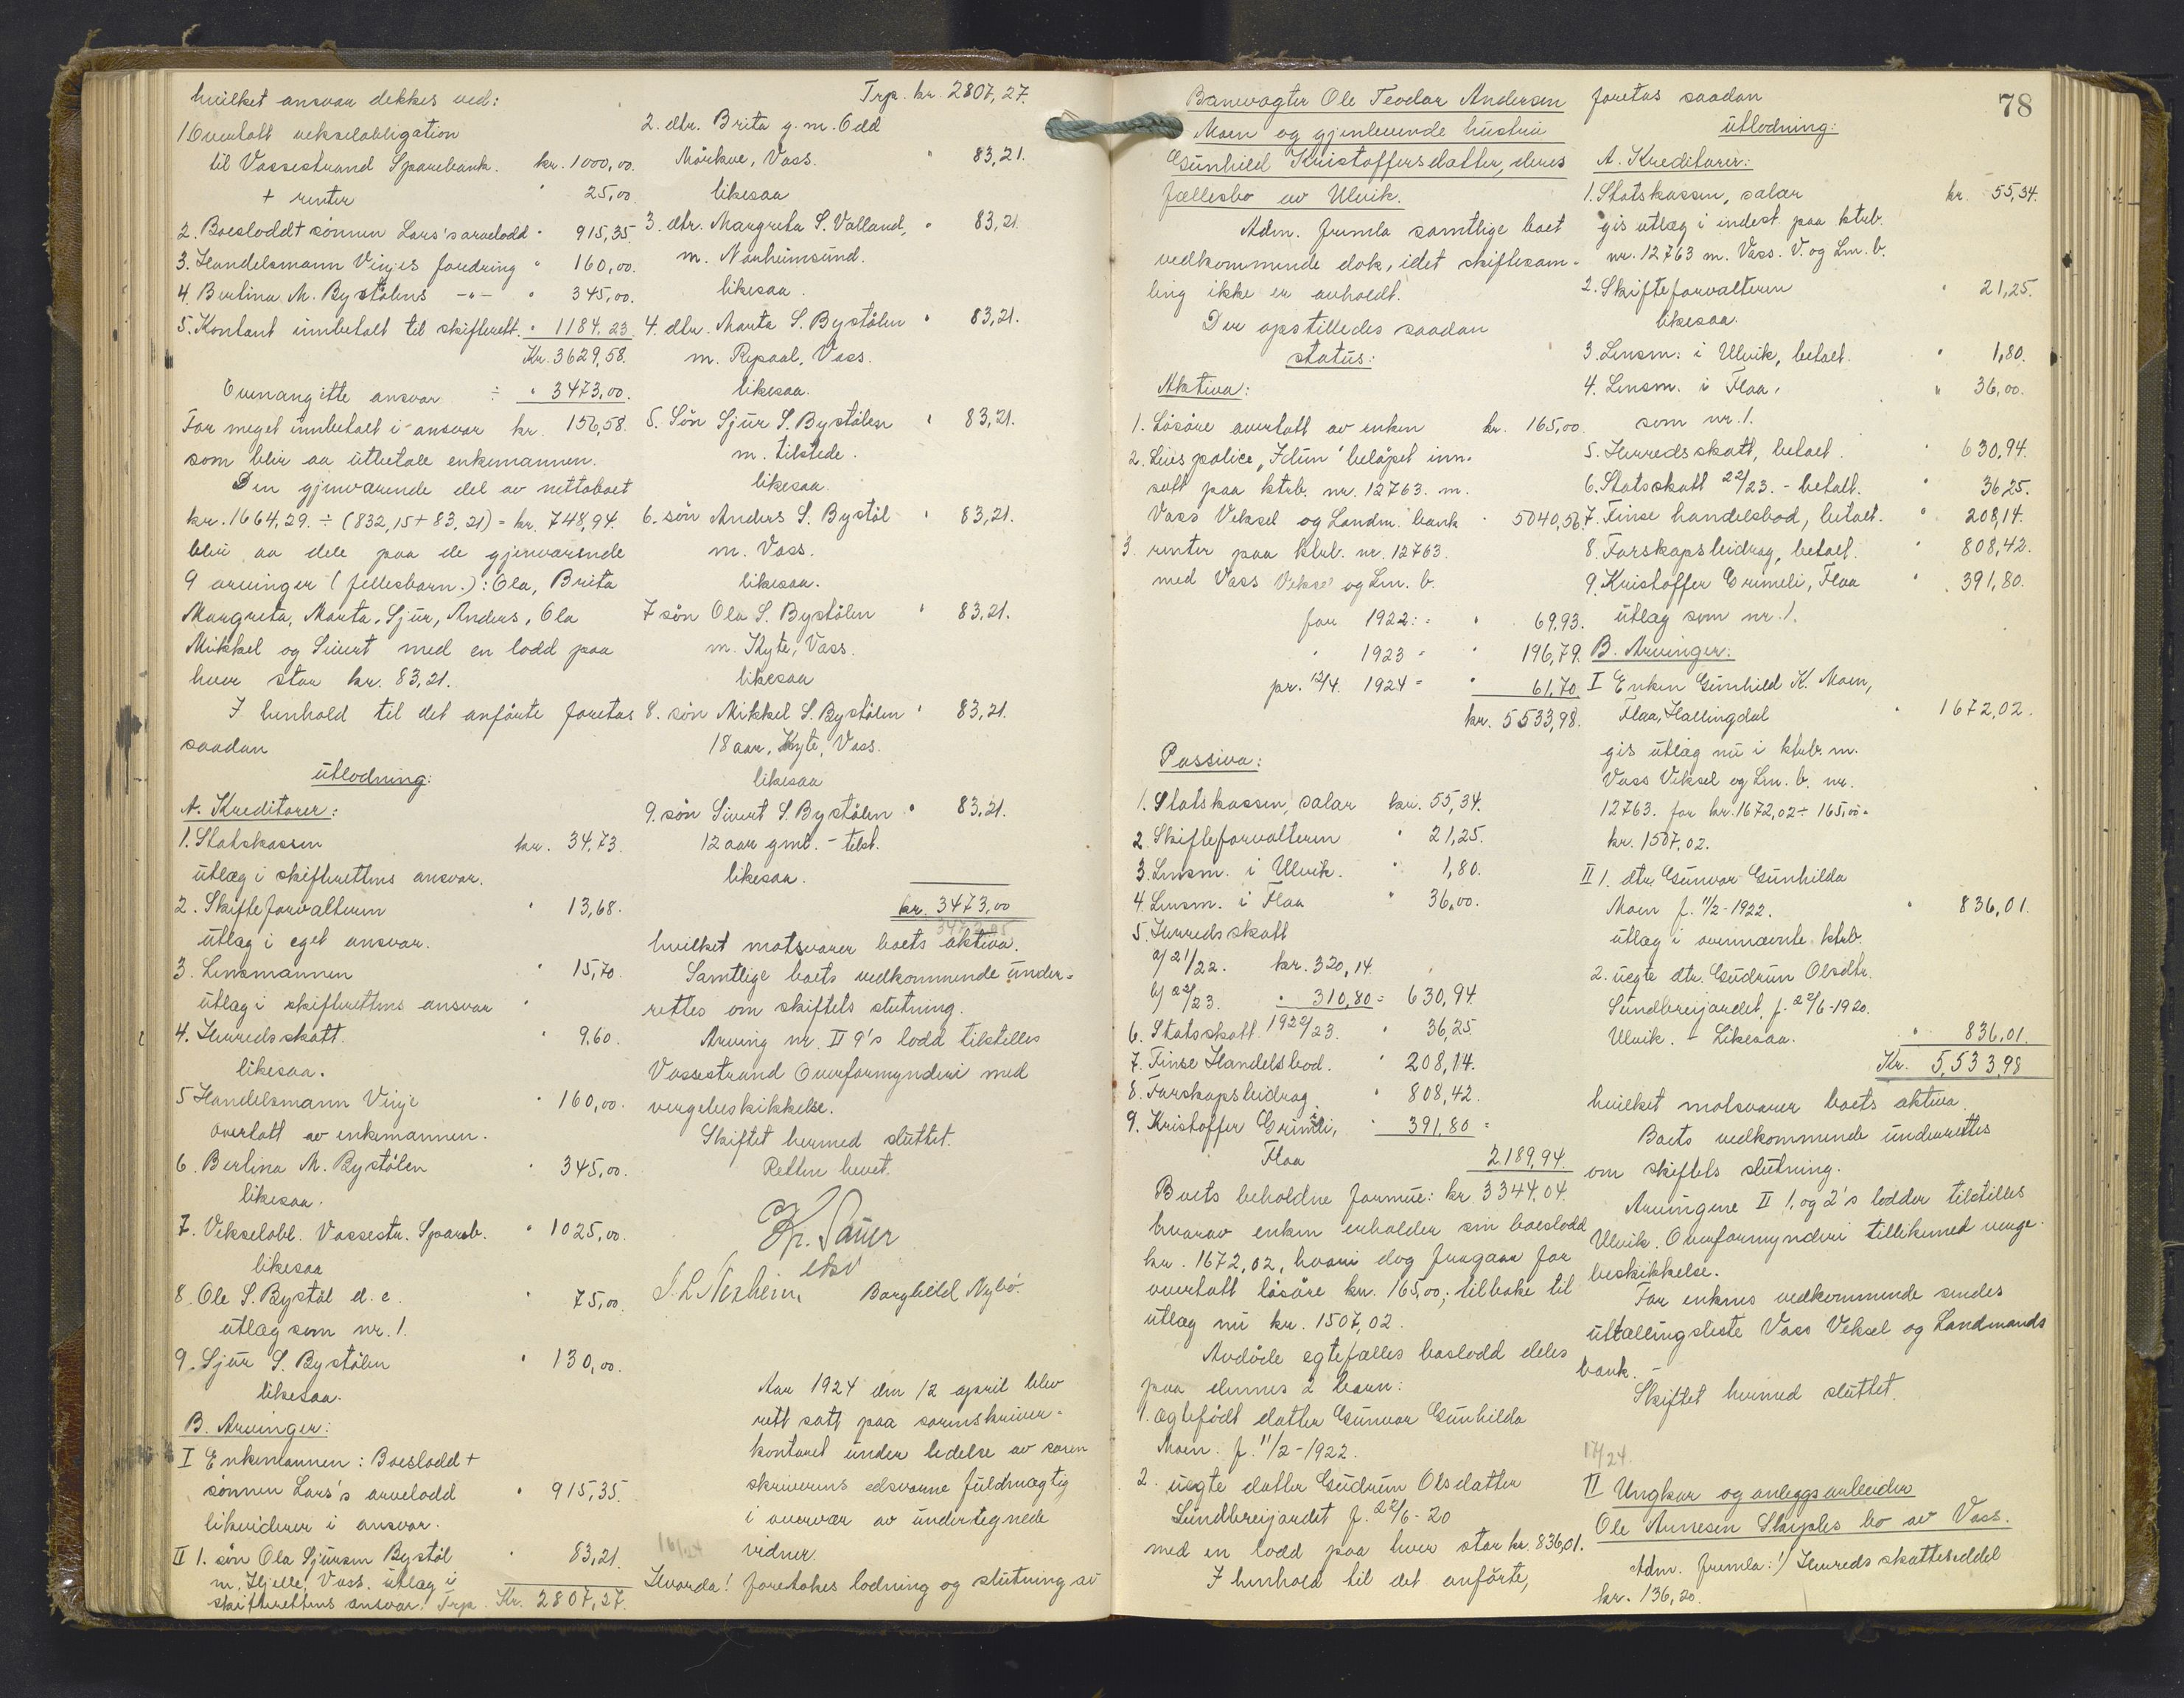 hvilket ansvar dekkes ved:
1 Overtatt vekselobligation
til Vossestrand Sparebank. kr. 1000,00.
+ renter " 25,00.
2. Boeslodd + sönnen Lars's arvelodd " 915,35.
3. Handelsmann Vinjes fordring " 160,00.
4. Berlina M. Bystölens -"- " 345,00.
5. Kontant innbetalt til skifterett. " 1184,23
Kr. 3629,58.
Ovenangitte ansvar ÷ " 3473,00.
For meget innbetalt i ansvar kr. 156,58.
som blir aa utbetale enkemannen.
Den gjenværende del av nettoboet
kr. 1664,29. ÷ (832,15 + 83,21) = kr. 748,94.
blir aa dele paa de gjenværende
9 arvinger (fellesbarn.): Ola, Brita
Margreta, Marta, Sjur, Anders, Ola
Mikkel og Sivert med en lodd paa
hver stor kr. 83,21.
I henhold til det anförte foretas
saadan
utlodning:
A. Kreditorer:
1. Statskassen kr. 34,73.
utlæg i skifterettens ansvar.
2. Skifteforvalteren " 13,68.
utlæg i eget ansvar.
3. Lensmannen " 15,70.
utlæg i skifterettens ansvar "
4. Herredsskatt. " 9,60.
likesaa.
5 Handelsmann Vinje " 160,00.
overtatt av enkemannen.
6. Berlina M. Bystölen " 345,00.
likesaa.
7. Vekselobl. Vossestr. Spareb. " 1025,00.
likesaa
8. Ole S. Bystöl d.e. " 75,00.
utlæg som nr. 1.
9. Sjur S. Bystölen " 130,00.
likesaa.
B. Arvinger:
I Enkemannen: Boeslodd +
sönnen Lars's arvelodd " 915,35.
likviderer i ansvar.
II 1. sön Ola Sjursen Bystöl " 83,21.
m. Hjelle, Voss. utlæg i
skifterettens ansvar. Trp. Kr. 2807,27.
Trp. kr. 2807,27.
2. dtr. Brita g.m. Odd
Mörkve, Voss. " 83,21.
likesaa
3. dtr. Margreta S. Valland, " 83,21
m. Norheimsund.
likesaa.
4. dtr. Marta S. Bystölen " 83,21.
m. Repaal, Voss.
likesaa.
5. Sön Sjur S. Bystölen " 83,21.
m. tilstede.
likesaa.
6. sön Anders S. Bystöl " 83,21.
m. Voss.
likesaa.
7 sön Ola S. Bystölen " 83,21.
m. Kyte, Voss.
likesaa
8. sön Mikkel S. Bystölen " 83,21.
18 aar, Kyte, Voss.
likesaa
9. sön Sivert S. Bystölen " 83,21.
12 aar gml. - tilst.
likesaa.
kr. 3473,00
hvilket motsvarer boets aktiva.
Samtlige boets vedkommende under=
rettes om skiftets slutning.
Arving nr. II 9's lodd tilstilles
Vossestrand Overformynderi med
vergebeskikkelse.
Skiftet hermed sluttet.
Retten hevet.
Kr. Sauer
edsv
J. L. Nesheim, Borghild Nybö.
Aar 1924 den 12 april blev
rett satt paa sorenskriver=
kontoret under ledelse av soren
skriverens edsvorne fuldmægtig
i overvær av undertegnede
vidner.
16/24
Hvorda! foretokes lodning og slutning av
78
Banevogter Ole Teodor Andersen
Moen og gjenlevende hustru
Gunhild Kristoffersdatter, deres
fællesbo av Ulvik.
Adm. fremla samtlige boet
vedkommende dok, idet skiftesam=
ling ikke er avholdt.
Der opstilledes saadan
status:
Aktiva:
1. Lösöre overtatt av enken kr. 165,00.
2. Livspolice "Idun" belöpet inn=
satt paa ktrb. nr. 12763. m.
Voss Veksel og Landm. bank " 5040,56.
3. renter paa ktrb. nr. 12763.
med Voss Veksel og Lm. b.
for 1922: = " 69,93.
" 1923 = " 196,79.
pr. 12/4. 1924 = " 61,70
kr. 5533,98.
Passiva:
1. Statskassen, salær kr. 55,34.
2. Skifteforvalteren " 21,25.
3. Lensm. i Ulvik. " 1,80.
4. Lensm. i Flaa " 36,00.
5. Herredsskatt
a/ 21/22. kr. 320,14.
b/ 22/23. " 310,80 = 630,94.
6. Statsskatt 1922/23. " 36,25.
7. Finse Handelsbod. " 208,14.
8. Farskapsbidrag " 808,42.
9. Kristoffer Grimeli, " 391,80 =
Flaa 2189,94.
Boets beholdne formue: kr 3344,04.
hvorav enken erholder sin boeslodd
kr. 1672,02, hvori dog fragaar for
overtatt lösöre kr. 165,00; tilbake til
utlæg nu kr. 1507,02.
Avdöde egtefælles boslodd deles
paa dennes 2 barn:
1. ægtefödt datter Gunvor Gunhilda
Moen. f. 11/2 - 1922.
2. uegte datter Gudrun Olsdatter
Sundbreijordet f. 22/6 - 20
med en lodd paa hver stor kr. 836,01.
I henhold til det anförte,
foretas saadan
utlodning:
A. Kreditorer:
1. Statskassen, salær kr. 55,34.
gis utlæg i indest. paa ktrb.
nr. 12763 m. Voss. V. og Lm. b.
2. Skifteforvalteren " 21,25.
likesaa.
3. Lensm. i Ulvik, betalt. " 1,80.
4. Lensm. i Flaa, " 36,00.
som nr. 1.
5. Herredsskatt, betalt. " 630,94.
6. Statsskatt 22/23. - betalt. " 36,25.
7. Finse handelsbod, betalt. " 208,14.
8. Farskapsbidrag, betalt. " 808,42.
9. Kristoffer Grimeli, Flaa " 391,80.
utlæg som nr. 1.
B. Arvinger:
I Enken Gunhild K. Moen,
Flaa, Hallingdal " 1672,02.
gis utlæg nu i ktrb. m.
Voss Veksel og Lm. b. nr.
12763. for kr. 1672,02 ÷ 165,00 =
kr. 1507,02.
II 1. dtr. Gunvor Gunhilda
Moen f. 11/2 - 1922. " 836,01.
utlæg i ovennævnte ktrb.
2. uegte dtr. Gudrun Olsdtr.
Sundbreijordet, f. 22/6 - 1920.
Ulvik. - Likesaa. " 836,01.
Kr. 5,533,98
hvilket motsvarer boets aktiva.
Boets vedkommende underrettes
om skiftets slutning.
Arvingene II 1. og 2's lodder tilstilles
Ulvik. Overformynderi tillikemed verge-
beskikkelse.
For enkens vedkommende sendes
uttællingsliste Voss Veksel og Landmands
bank.
Skiftet hermed sluttet.
17/24.
II Ungkar og anleggsarbeider
Ole Arnesen Skiples bo av Voss.
Adm. fremla: 1) Herredsskatteseddel
kr. 136,20.